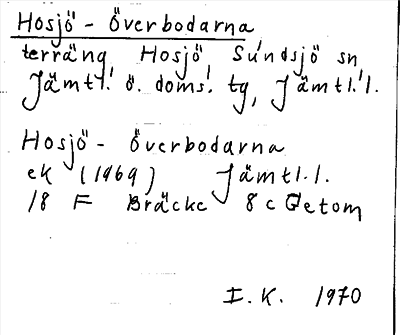 Hosjö - Överbodarna
terräng Hosjö, Sundsjö sn,
Jämtl. ö. doms. tg, Jämtl. l.
Hosjö - Överbodarna
ek (1969) Jämtl. l.
18 F Bräcke 8 c Getom
I. K. 1970